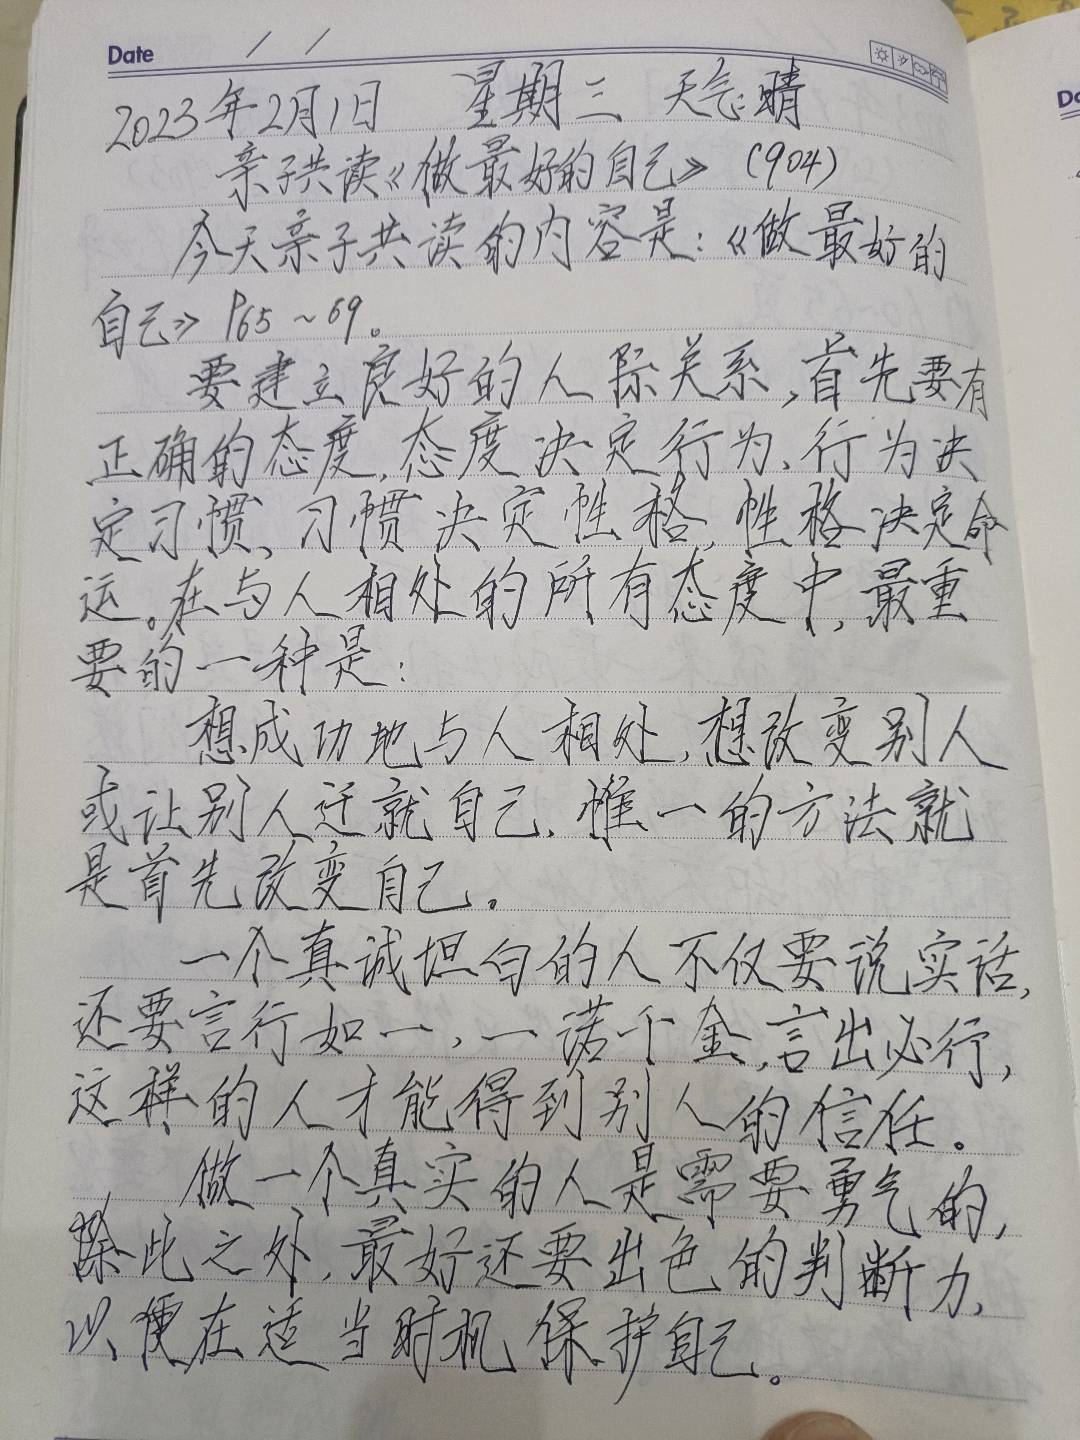 Date / /
2023年2月1日 星期三 天气:晴
亲子共读《做最好的自己》(904)
今天亲子共读的内容是:《做最好的
自己》P65~69。
要建立良好的人际关系,首先要有
正确的态度,态度决定行为,行为决
定习惯,习惯决定性格,性格决定命
运。在与人相处的所有态度中,最重
要的一种是:
想成功地与人相处,想改变别人
或让别人迁就自己,惟一的方法就
是首先改变自己。
一个真诚坦白的人不仅要说实话,
还要言行如一,一诺千金,言出必行,
这样的人才能得到别人的信任。
做一个真实的人是需要勇气的,
除此之外,最好还要出色的判断力,
以便在适当时机保护自己。